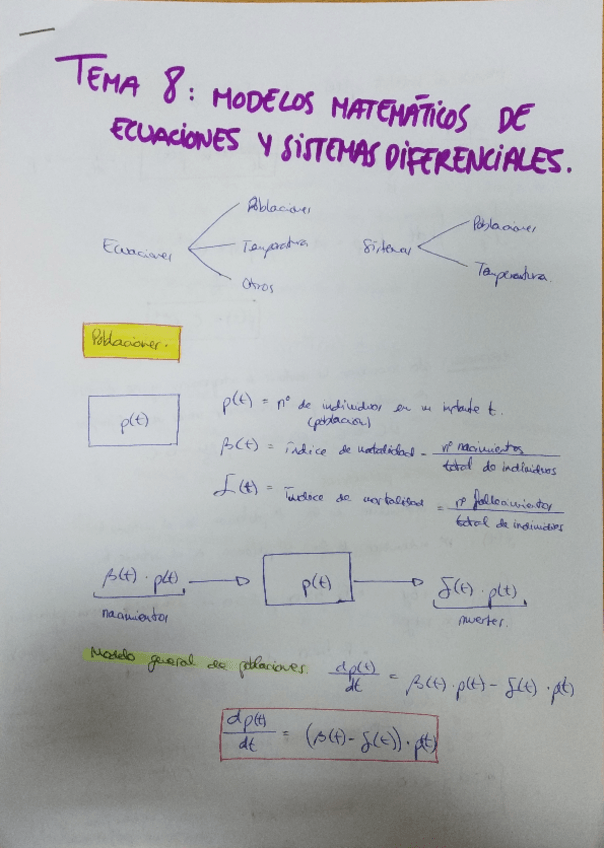 TEMA 8: MODELOS MATEMÁTICOS DE
ECUACIONES Y SISTEMAS DIFERENCIALES.
Ecuaciones
Poblaciones
Temperatura
Otros
Sistemas
Poblaciones
Temperatura.
Poblaciones.
p(t)
p(t) = nº de individuos en un instante t.
(población)
β(t) = índice de natalidad = nº nacimientos / total de individuos
δ(t) = índice de mortalidad = nº fallecimientos / total de individuos
β(t) · p(t)
nacimientos
p(t)
δ(t) · p(t)
muertes.
Modelo general de poblaciones. dp(t)/dt = β(t) · p(t) - δ(t) · p(t)
dp(t)/dt = (β(t) - δ(t)) · p(t)